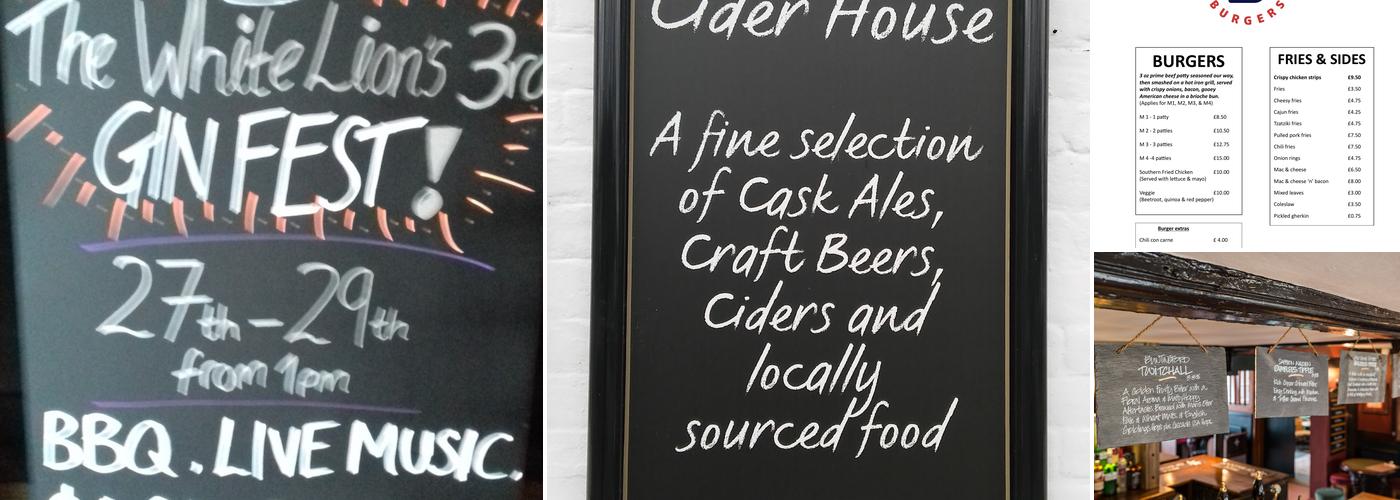 The White Lion's 3rd
GIN FEST!
27th - 29th
from 1pm
BBQ. LIVE MUSIC.
Cider House
A fine selection
of Cask Ales,
Craft Beers,
Ciders and
locally
sourced food
BURGERS
BURGERS
3 oz prime beef patty seasoned our way,
then smashed on a hot iron grill, served
with crispy onions, bacon, gooey
American cheese in a brioche bun.
(Applies for M1, M2, M3, & M4)
M 1 - 1 patty £8.50
M 2 - 2 patties £10.50
M 3 - 3 patties £12.75
M 4 -4 patties £15.00
Southern Fried Chicken £10.00
(Served with lettuce & mayo)
Veggie £10.00
(Beetroot, quinoa & red pepper)
Burger extras
Chili con carne £ 4.00
FRIES & SIDES
Crispy chicken strips £9.50
Fries £3.50
Cheesy fries £4.75
Cajun fries £4.25
Tzatziki fries £4.75
Pulled pork fries £7.50
Chili fries £7.50
Onion rings £4.75
Mac & cheese £6.50
Mac & cheese 'n' bacon £8.00
Mixed leaves £3.00
Coleslaw £3.50
Pickled gherkin £0.75
BUNTINGFORD
TWITCHALL
A Golden Fruity Bitter with a
Floral Aroma